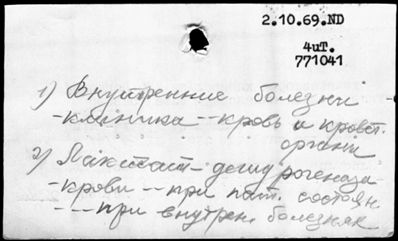 2.10.69.ND
4ит.
771041
1) Внутренние болезни -
-клиника -- кровь и кровет.
органи
2) Лактат-дегидрогеназа
-крови -- при пат. состоян
--- при внутрен. болезнях